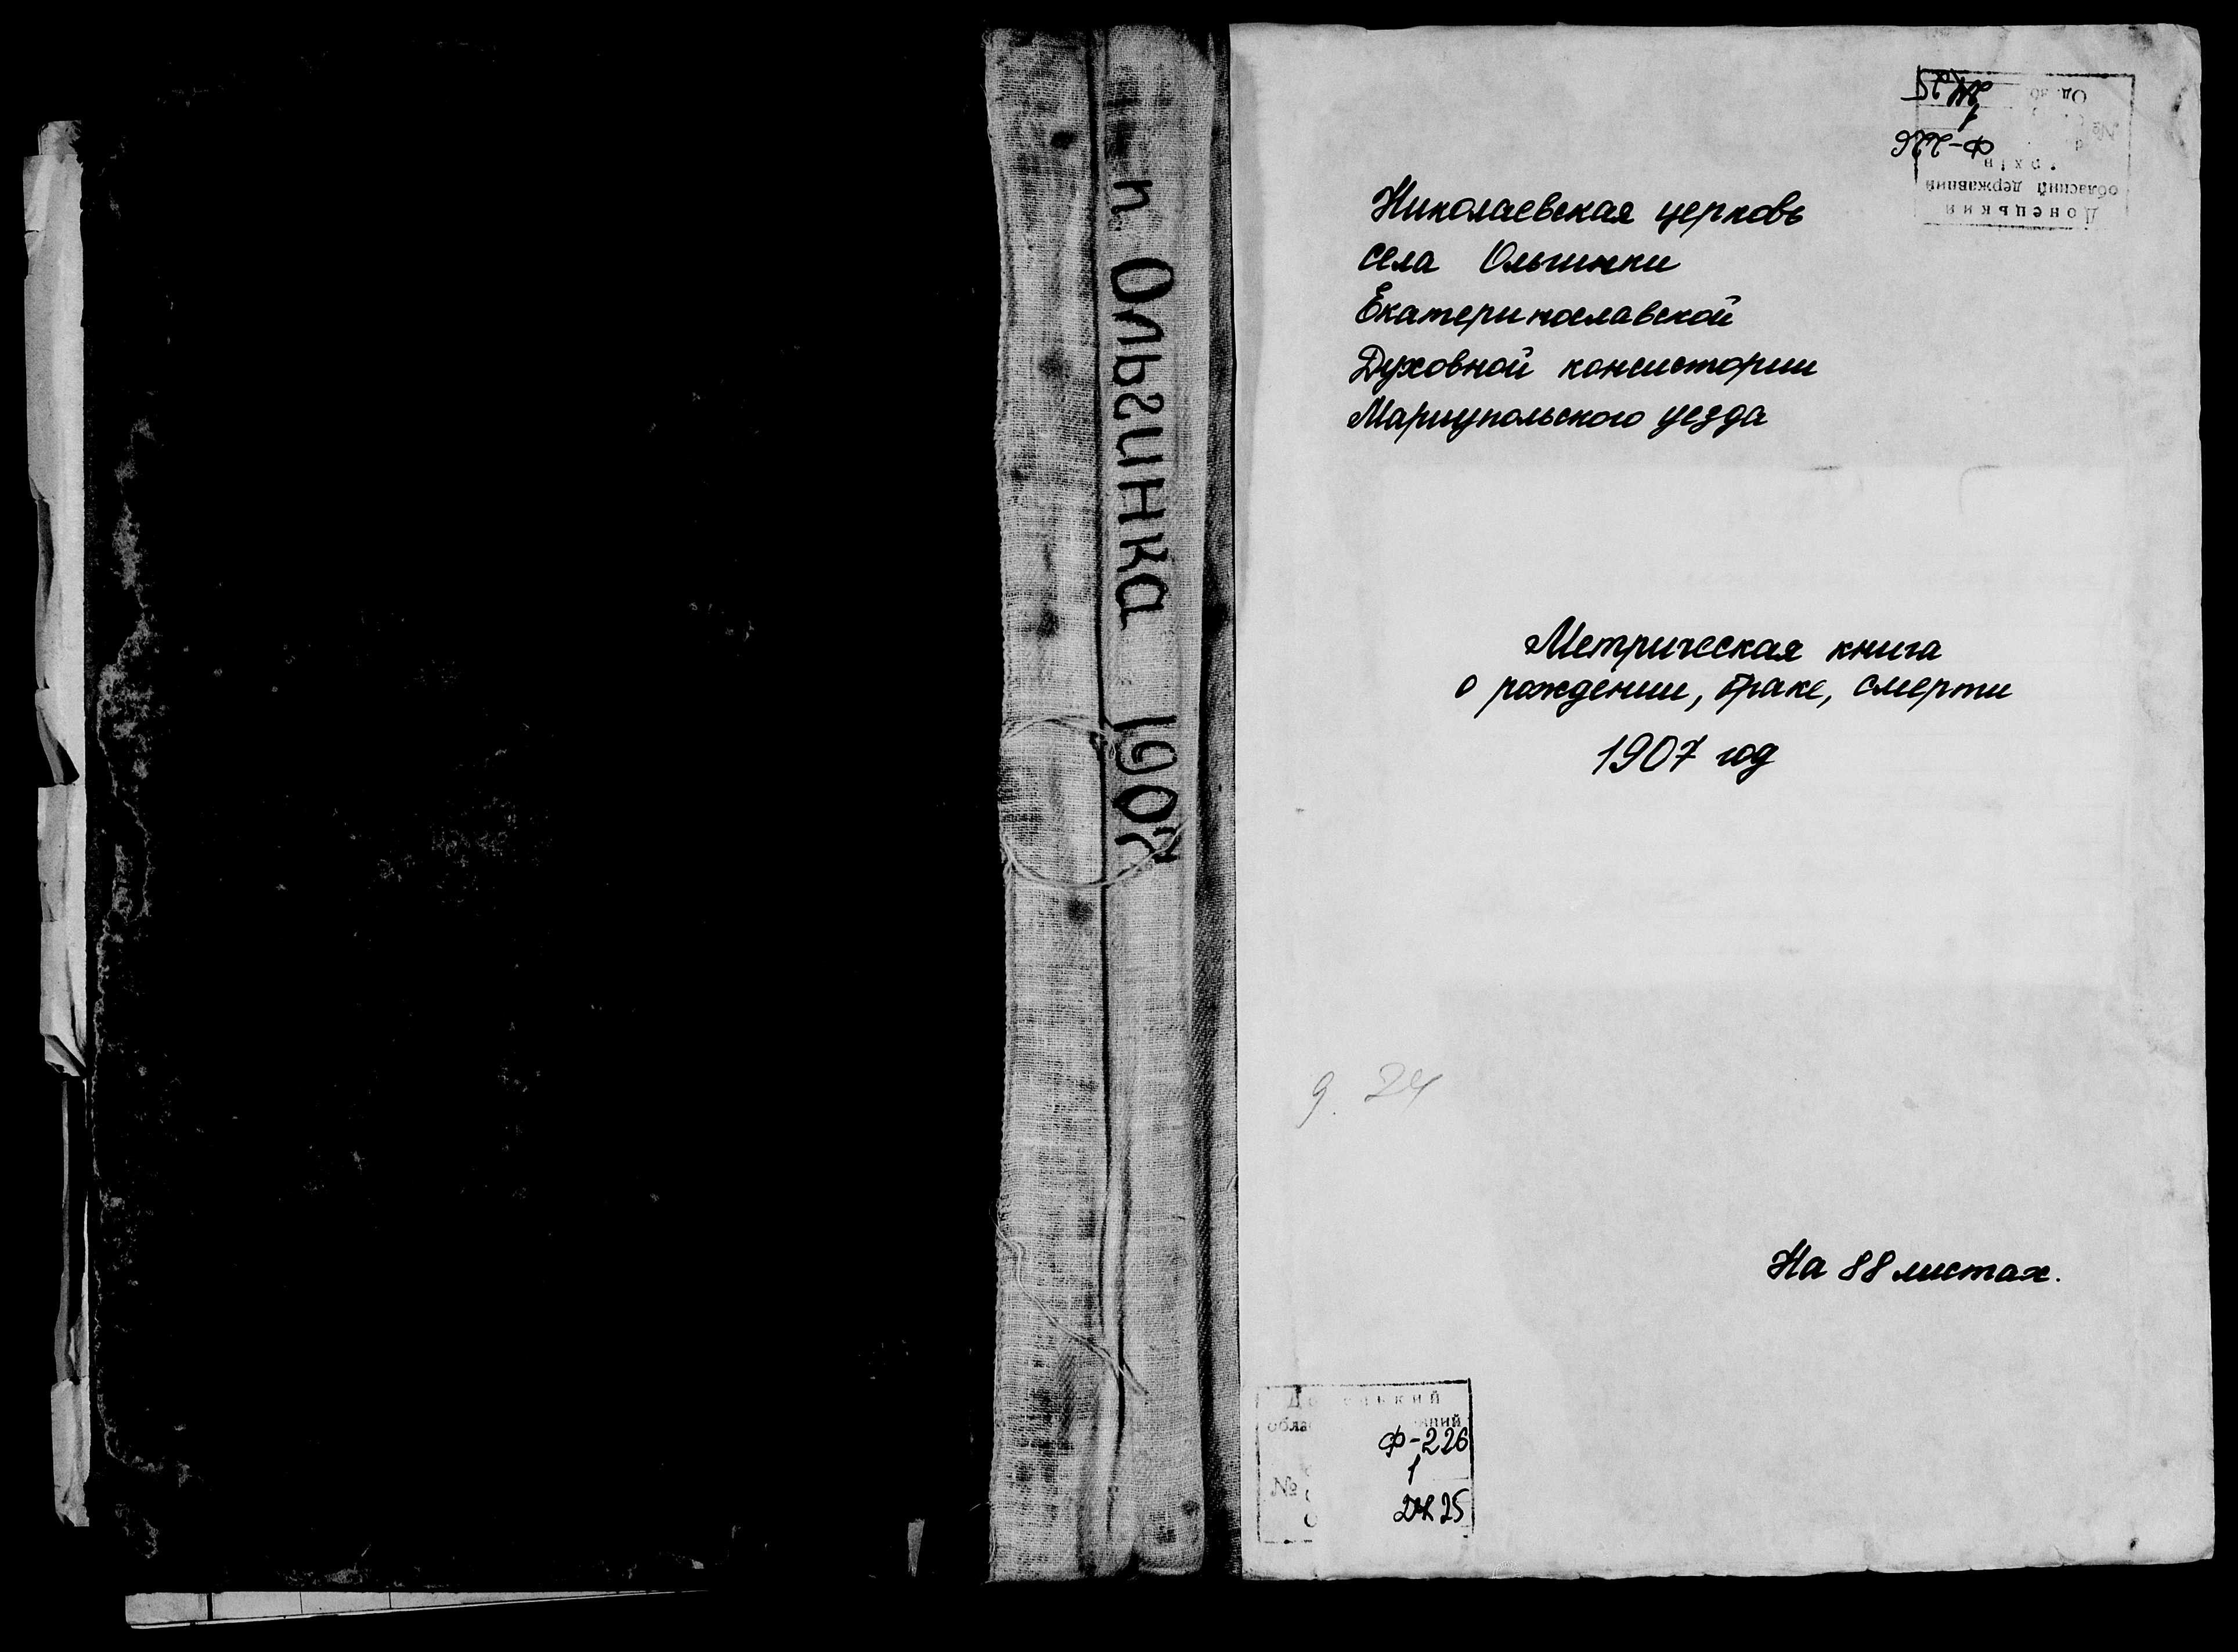 п. Ольгинка 1907
Николаевская церковь
села Ольгинки
Екатеринославской
Духовной консистории
Мариупольского уезда
Метрическая книга
о рождении, браке, смерти
1907 год
д. 24
На 88 листах.
Ф-226
1
25
№
Донецький
обласний державний
архів
№
Од. зб
Ф-226
1
25